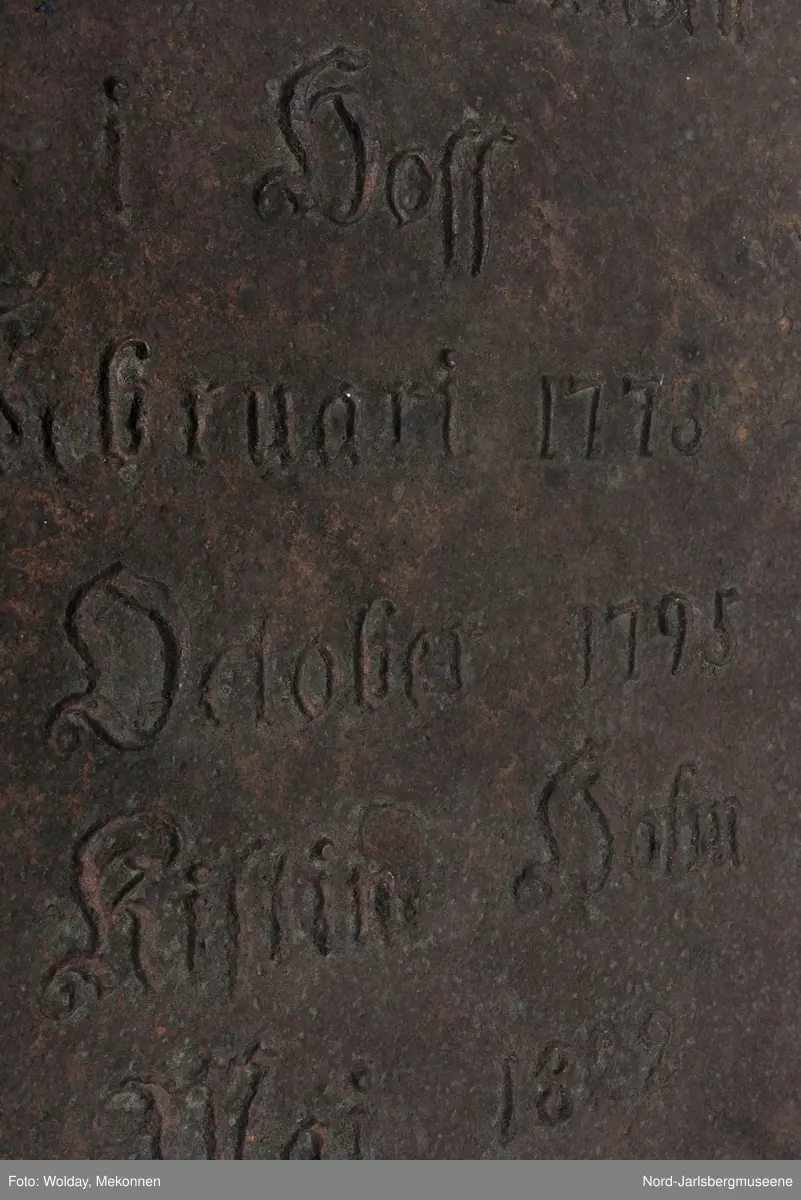 i Hoff
Februari 1773
October 1795
Kistin Holm
Mai 1822
Foto: Wolday, Mekonnen
Nord-Jarlsbergmuseene